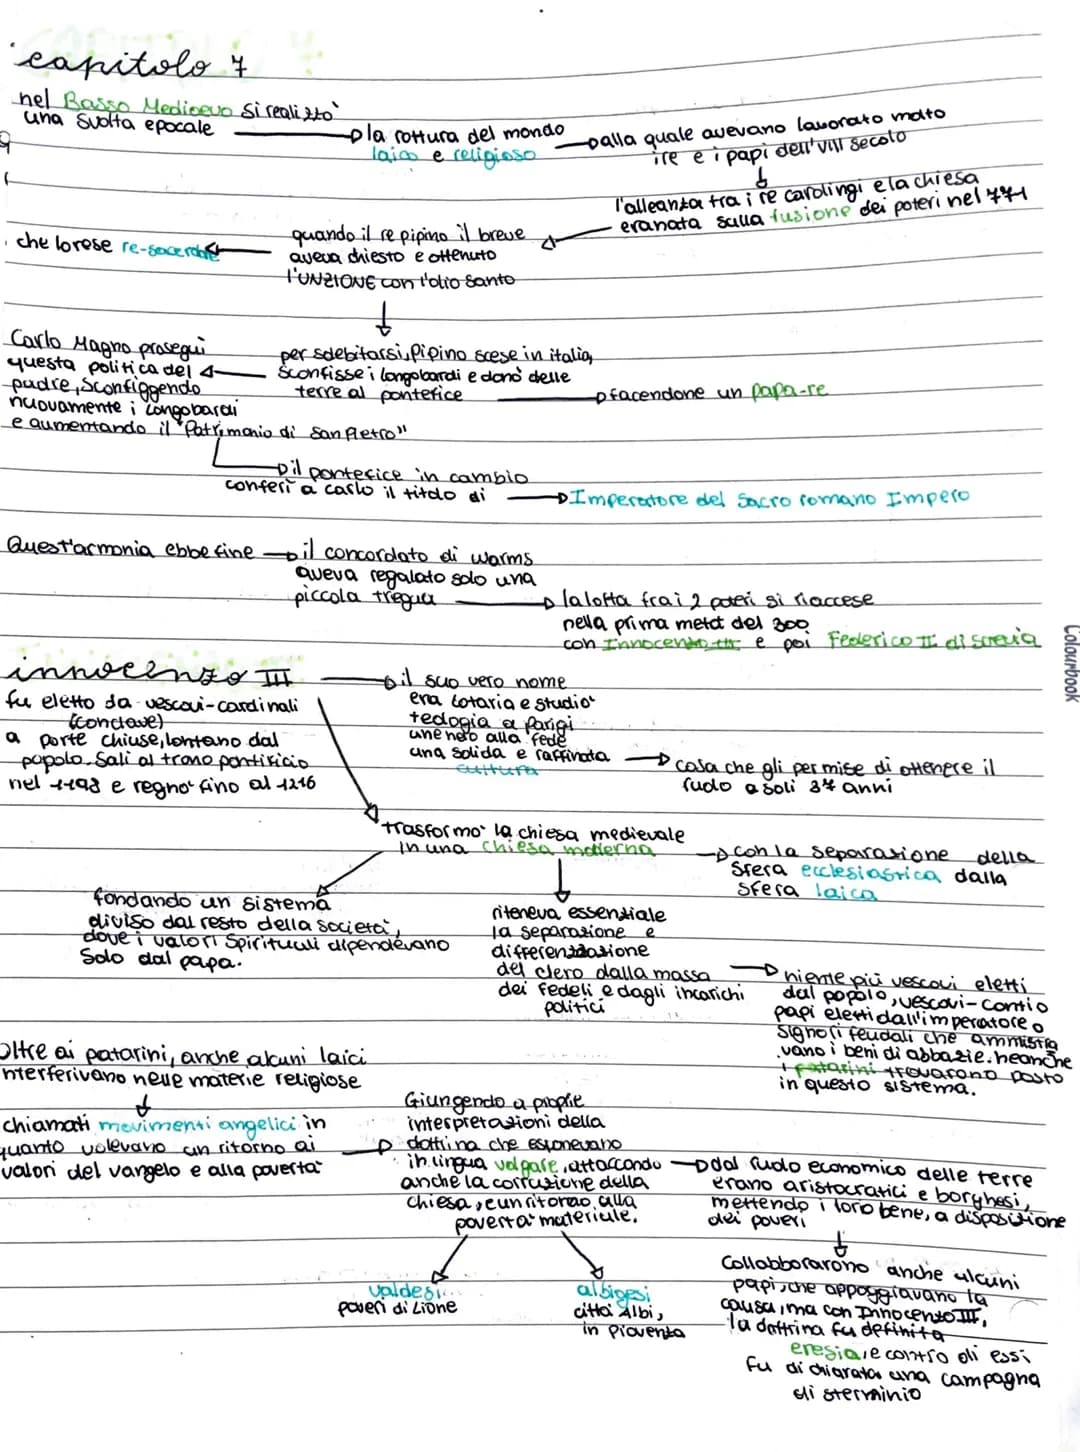 capitolo 7
nel Basso Medioevo si realizzò
una svolta epocale
la rottura del mondo
laico e religioso
dalla quale avevano lavorato molto
i re e i papi dell'VIII secolo
l'alleanza tra i re carolingi e la chiesa
era nata sulla fusione dei poteri nel 771
quando il re pipino il breve
aveva chiesto e ottenuto
l'UNZIONE con l'olio santo
che lo rese re-sacerdote
per sdebitarsi, Pipino scese in italia,
sconfisse i longobardi e donò delle
terre al pontefice
facendone un papa-re
Carlo Magno proseguì
questa politica del
padre, sconfiggendo
nuovamente i longobardi
e aumentando il "Patrimonio di San Pietro"
il pontefice in cambio
conferì a carlo il titolo di
Imperatore del Sacro romano Impero
Quest'armonia ebbe fine
il concordato di worms
aveva regalato solo una
piccola tregua
la lotta fra i 2 poteri si riaccese
nella prima metà del 300
con Innocenzo III e poi Federico II di svevia
innocenzo III
fu eletto da vescovi-cardinali
(conclave)
a porte chiuse, lontano dal
popolo. Salì al trono pontificio
nel 1198 e regnò fino al 1216
il suo vero nome
era Lotario e studiò
teologia a Parigi
unendo alla fede
una solida e raffinata
cultura
cosa che gli permise di ottenere il
ruolo a soli 37 anni
trasformò la chiesa medievale
in una chiesa moderna
con la separazione della
sfera ecclesiastica dalla
sfera laica
fondando un sistema
diviso dal resto della società,
dove i valori spirituali dipendevano
solo dal papa.
riteneva essenziale
la separazione e
differenziazione
del clero dalla massa
dei fedeli e dagli incarichi
politici
niente più vescovi eletti
dal popolo, vescovi-conti o
papi eletti dall'imperatore o
signori feudali che ammistra
vano i beni di abbazie. neanche
i patarini trovarono posto
in questo sistema.
Oltre ai patarini, anche alcuni laici
interferivano nelle materie religiose
chiamati movimenti angelici in
quanto volevano un ritorno ai
valori del vangelo e alla povertà
Giungendo a proprie
interpretazioni della
dottrina che esponevano
in lingua volgare, attaccando
anche la corruzione della
chiesa, e un ritorno alla
povertà materiale.
dal ruolo economico delle terre
erano aristocratici e borghesi,
mettendo i loro bene, a disposizione
dei poveri
valdesi
poveri di Lione
albigesi
città Albi,
in Provenza
Collabborarono anche alcuni
papi, che appoggiavano la
causa, ma con Innocenzo III,
la dottrina fu definita
eresia, e contro di essi
fu dichiarata una campagna
di sterminio
Colourbook